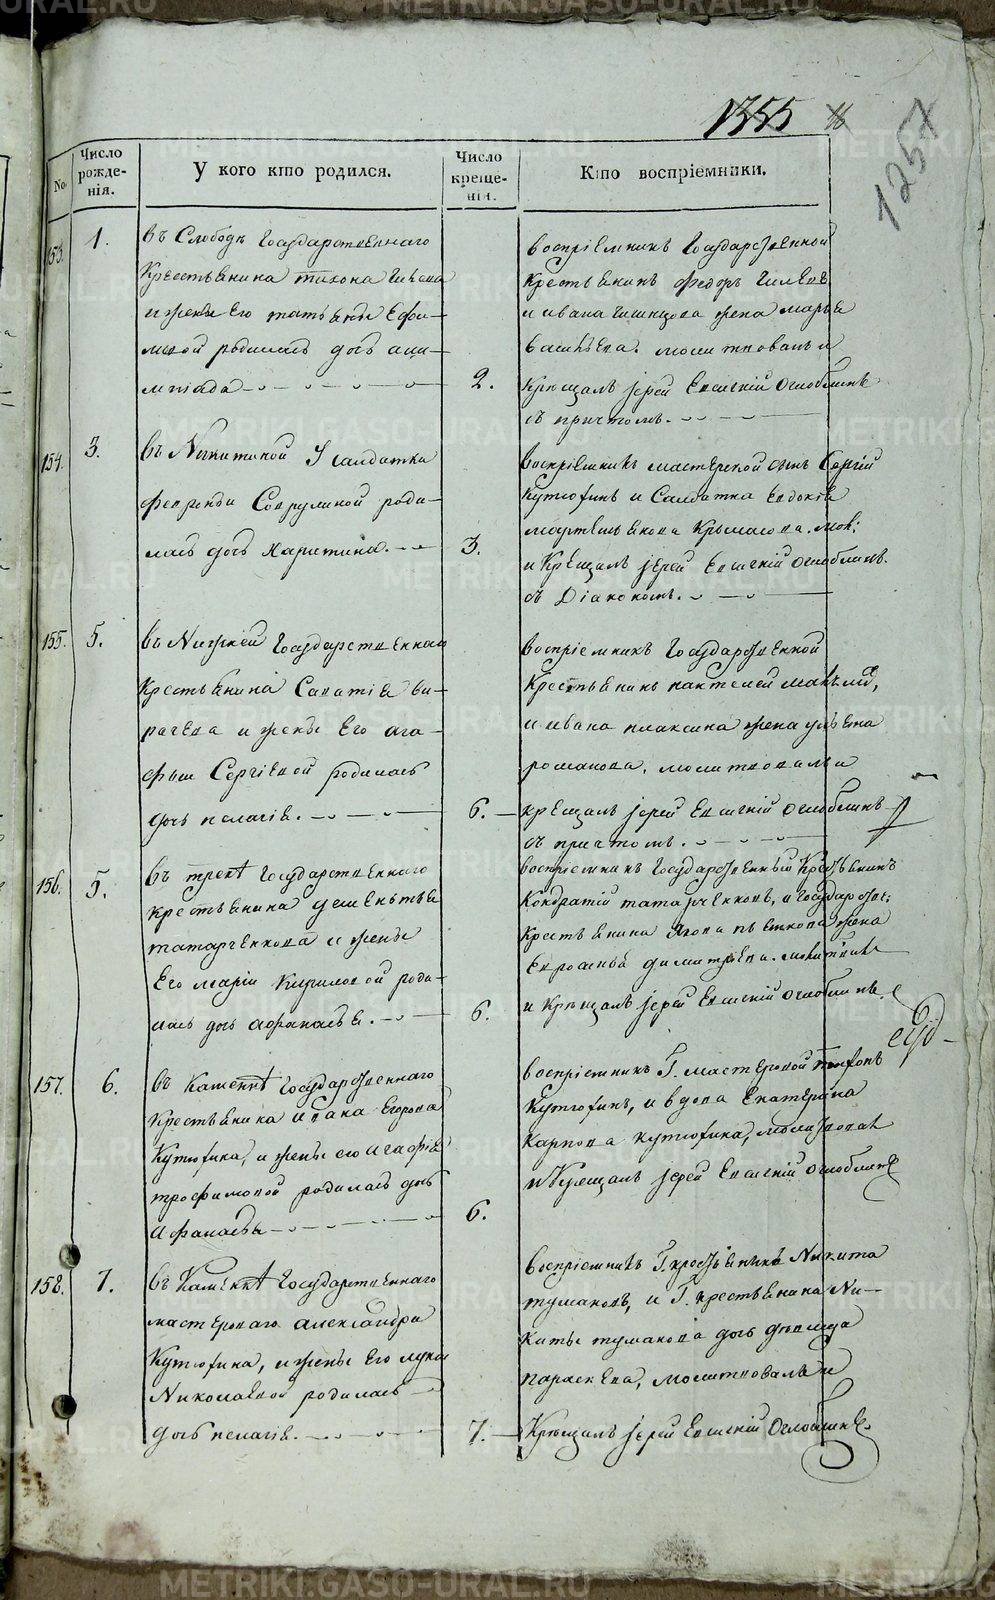 1355
1257
No.
Число рожде-
нія.
У кого кто родился.
Число креще-
нія.
Кто воспріемники.
153.
1.
въ Слободѣ Государственнаго
Крестьянина тихона
и жены его татьяны Ефи-
мовой родилась дочь
2.
воспріемникъ Государственной
Крестьянинъ Федоръ
и ивана жена марья
молитвовалъ и
Крещалъ іерей Евгеній Оглоблинъ
съ причтомъ.
154.
3.
въ Никитиной У салдатки
февроньи роди-
лась дочь Харитина.
3.
воспріемникъ мастерской сынъ Сергій
Кутюхинъ и Салдатка Евдокія
мол:
и Крещалъ іерей Евгеній Оглоблинъ.
съ Діакономъ.
155.
5.
въ Нижней Государственнаго
Крестьянина Саватія Ви-
рачева и жены Его ага-
фьи Сергіевой родилась
дочь пелагія.
6.
воспріемникъ Государственной
Крестьянинъ пантелей
и ивана плаксина жена ульяна
романова, молитвовалъ и
крещалъ іерей Евгеній Оглоблинъ
съ причтомъ.
156.
5.
въ Государственнаго
крестьянина
татарченкова и жены
Его маріи Кириловой роди-
лась дочь афанасья.
6.
воспріемникъ Государственный Крестьянинъ
Кондратій татарченковъ, и Государств:
Крестьянина Якова жена
Евросинья димитріева.
и Крещалъ іерей Евгеній Оглоблинъ.
157.
6.
въ Каменкѣ Государственнаго
Крестьянина ивана Егорова
Кутюхина, и жены его агафіи
трофимовой родилась дочь
афанасья
6.
воспріемникъ Г. мастеровой
Кутюхинъ, и вдова Екатерина
Карпова кутюхина, молитвовалъ
и Крещалъ іерей Евгеній Оглоблинъ
158.
7.
въ Каменкѣ Государственнаго
мастероваго александра
Кутюхина, и жены Его
Николаевой родилась
дочь пелагія.
7.
воспріемникъ Г. крестьянинъ Никита
тумановъ, и Г. крестьянина Ни-
киты туманова дочь дѣвица
параскева, молитвовалъ и
Крещалъ іерей Евгеній Оглоблинъ.
METRIKI.GASO-URAL.RU